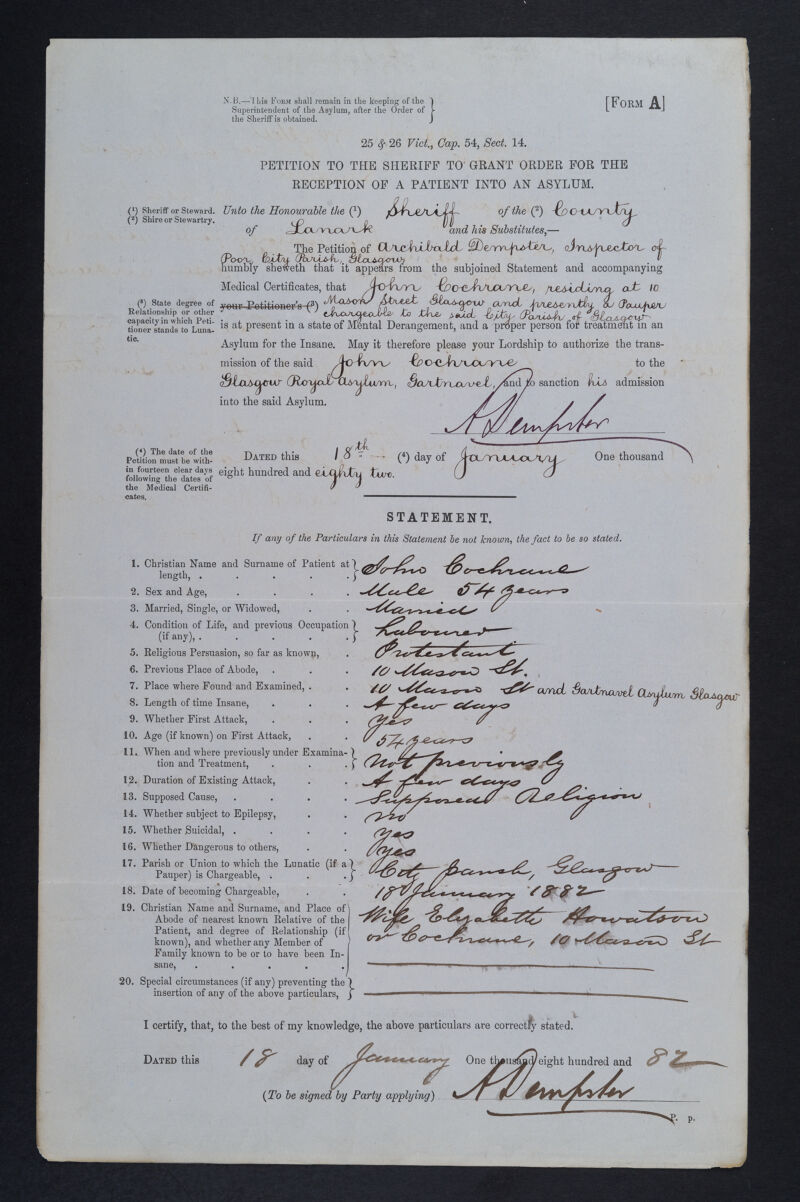 N.B.—This Form shall remain in the keeping of the
Superintendent of the Asylum, after the Order of
the Sheriff is obtained.
[Form A]
25 & 26 Vict., Cap. 54, Sect. 14.
PETITION TO THE SHERIFF TO GRANT ORDER FOR THE
RECEPTION OF A PATIENT INTO AN ASYLUM.
(1) Sheriff or Steward.
(2) Shire or Stewartry.
Unto the Honourable the (1) Sheriff of the (2) County
of Lanark and his Substitutes,—
The Petition of Archibald Dempster, Inspector of
Poor, City Parish, Glasgow
humbly sheweth that it appears from the subjoined Statement and accompanying
Medical Certificates, that John Cochrane, residing at 10
(3) State degree of
Relationship or other
capacity in which Peti-
tioner stands to Luna-
tic.
your Petitioner's (3) Mason Street Glasgow and presently a Pauper
chargeable to the said City Parish of Glasgow
is at present in a state of Mental Derangement, and a proper person for treatment in an
Asylum for the Insane. May it therefore please your Lordship to authorize the trans-
mission of the said John Cochrane to the
Glasgow Royal Asylum, Gartnavel, and to sanction his admission
into the said Asylum.
A Dempster
(4) The date of the
Petition must be with-
in fourteen clear days
following the dates of
the Medical Certifi-
cates.
Dated this 18th (4) day of January One thousand
eight hundred and eighty two.
STATEMENT.
If any of the Particulars in this Statement be not known, the fact to be so stated.
1. Christian Name and Surname of Patient at
length, . . . . . John Cochrane
2. Sex and Age, . . . . Male 54 years
3. Married, Single, or Widowed, . . Married
4. Condition of Life, and previous Occupation
(if any), . . . . . Labourer
5. Religious Persuasion, so far as known, . Protestant
6. Previous Place of Abode, . . . 10 Mason St.
7. Place where Found and Examined, . . 10 Mason St and Gartnavel Asylum Glasgow
8. Length of time Insane, . . . A few days
9. Whether First Attack, . . . Yes
10. Age (if known) on First Attack, . . 54 years
11. When and where previously under Examina-
tion and Treatment, . . . . Not previously
12. Duration of Existing Attack, . . A few days
13. Supposed Cause, . . . . Supposed Religion
14. Whether subject to Epilepsy, . . No
15. Whether Suicidal, . . . . Yes
16. Whether Dangerous to others, . . Yes
17. Parish or Union to which the Lunatic (if a
Pauper) is Chargeable, . . . . City parish, Glasgow
18. Date of becoming Chargeable, . . 18 January 1882
19. Christian Name and Surname, and Place of
Abode of nearest known Relative of the
Patient, and degree of Relationship (if
known), and whether any Member of
Family known to be or to have been In-
sane, . . . . .
Wife Elizabeth Howatson
or Cochrane, 10 Mason St
20. Special circumstances (if any) preventing the
insertion of any of the above particulars,
I certify, that, to the best of my knowledge, the above particulars are correctly stated.
Dated this 18 day of January One thousand eight hundred and 82
(To be signed by Party applying) A Dempster
P. p.